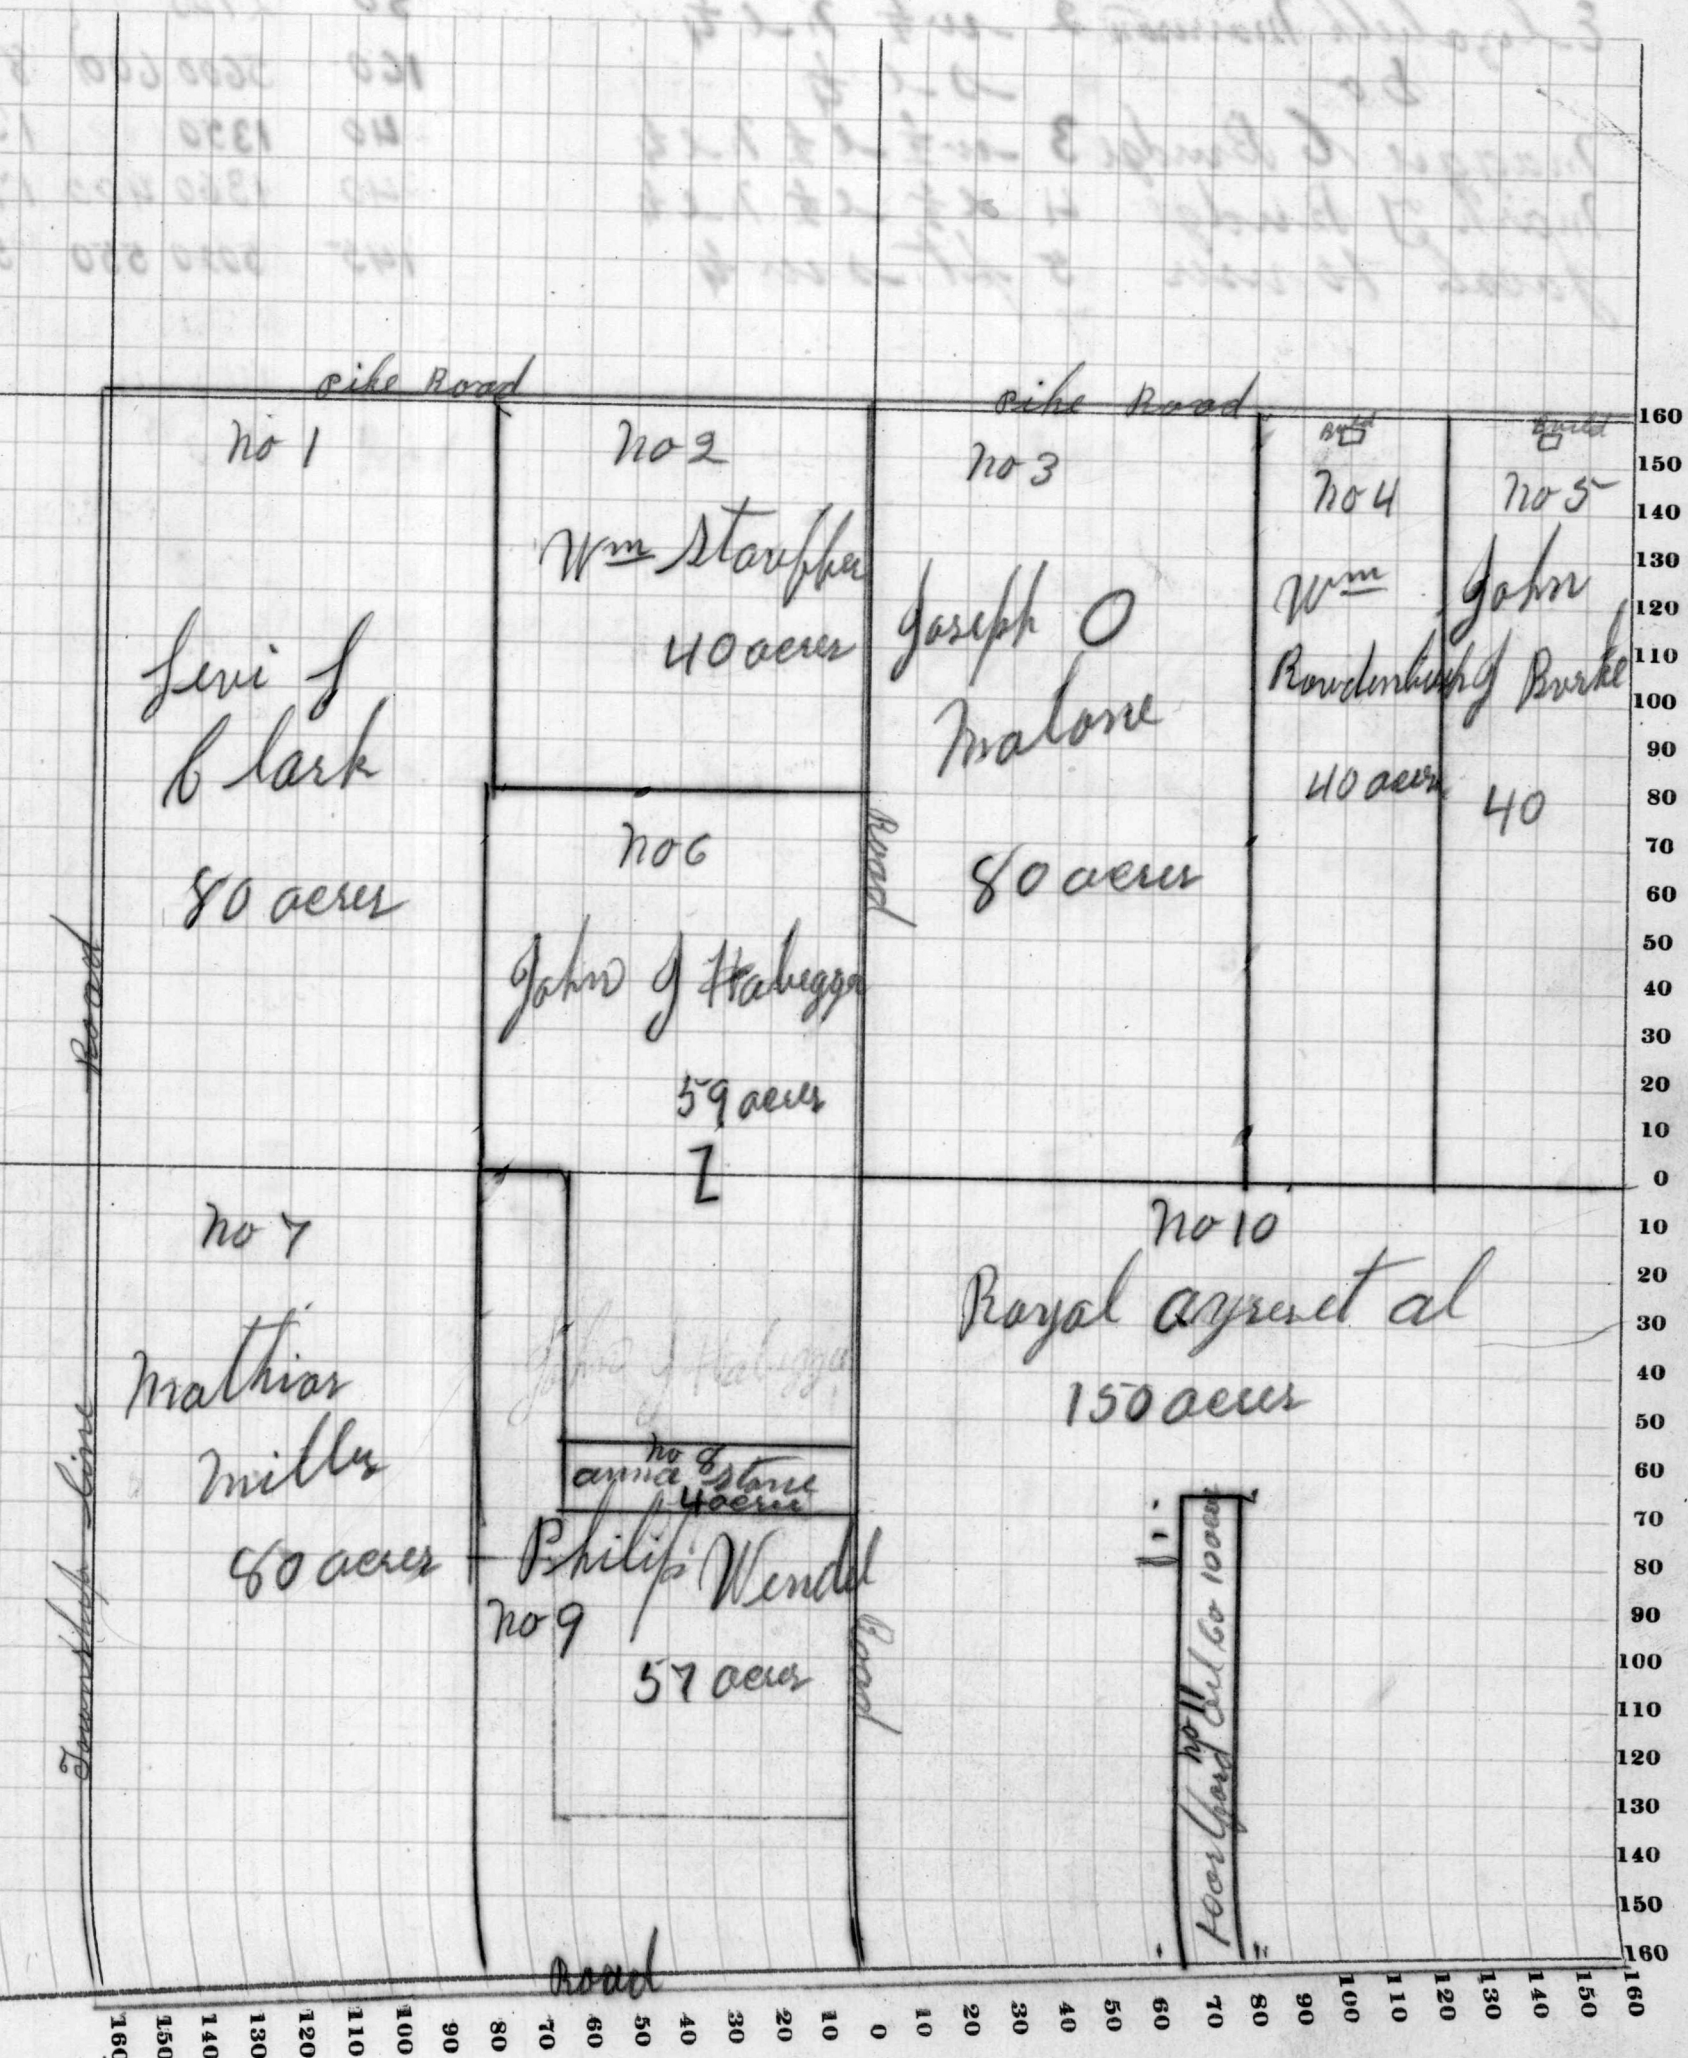 Pike Road
Pike Road
no 1
Levi L
Clark
80 acres
no 2
Wm Stauffer
40 acres
no 3
Joseph O
Malone
80 acres
Build
no 4
Wm
40 acres
Build
no 5
John
J Burke
40
no 6
John J Habegger
59 acres
Road
Road
no 7
Mathias
Miller
80 acres
Township Line
John J Habegger
no 8
anna Stone
4 acres
Philip Wendel
no 9
57 acres
Road
no 10
Royal ayres et al
150 acres
no 11
Oil Co 10 acres
Road
160
150
140
130
120
110
100
90
80
70
60
50
40
30
20
10
0
10
20
30
40
50
60
70
80
90
100
110
120
130
140
150
160
160 150 140 130 120 110 100 90 80 70 60 50 40 30 20 10 0 10 20 30 40 50 60 70 80 90 100 110 120 130 140 150 160